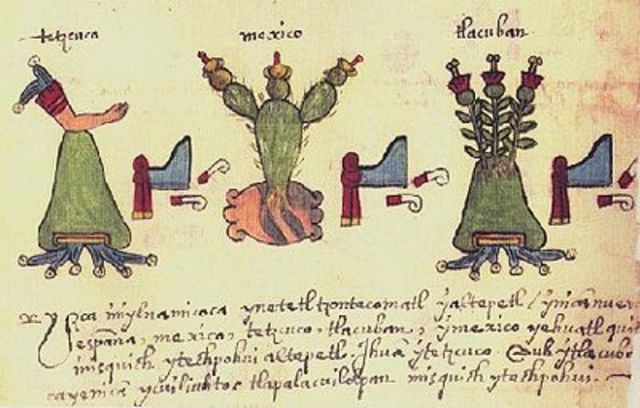 tetzcuco
mexico
tlacuban
yzca imylnamicoca ynetetl tzontecomatl yaltepetl ynican nueva
españa, mexico, tetzcuco, tlacuban, ymexico yehuatl
misquich ytechpohui altepetl. Yhuã ytetzcuco. Auh ytlacuba
cayenica ycuiliuhtoc tlapalacuilolpan misquich ytechpohui.